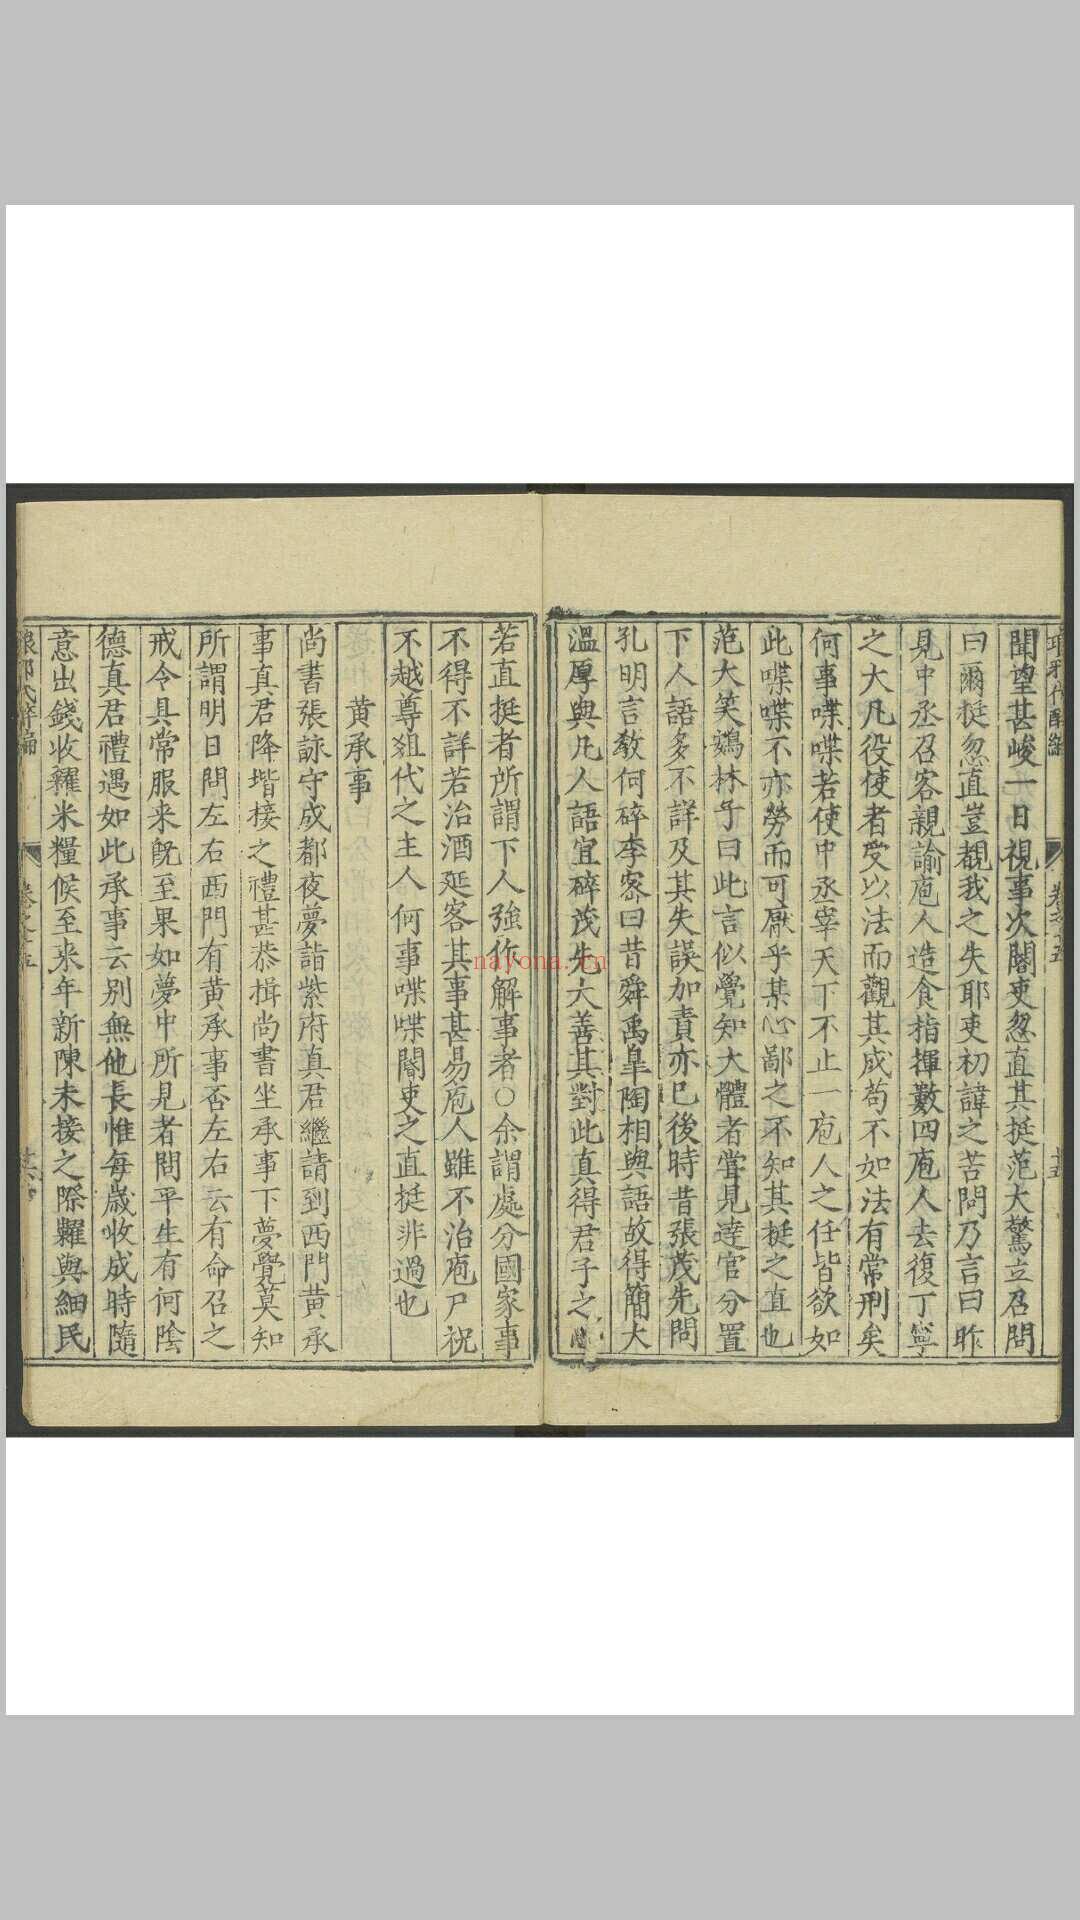 聞望甚峻一日視事次閽吏忽直其挺范大驚立召問
曰爾挺忽直豈覩我之失耶吏初諱之苦問乃言曰昨
見中丞召客親諭庖人造食指揮數四庖人去復丁寧
之大凡役使者受以法而觀其成苟不如法有常刑矣
何事喋喋若使中丞宰天下不止一庖人之任皆欲如
此喋喋不亦勞而可厭乎某心鄙之不知其挺之直也
范大笑鷃林子曰此言似覺知大體者甞見達官分置
下人語多不詳及其失誤加責亦已後時昔張茂先問
孔明言教何碎李密曰昔舜禹臯陶相與語故得簡大
溫厚與凡人語宜碎茂先大善其對此真得君子之
若直挺者所謂下人強作解事者○余謂處分國家事
不得不詳若治酒延客其事甚易庖人雖不治庖尸祝
不越尊俎代之主人何事喋喋閽吏之直挺非過也
黄承事
尚書張詠守成都夜夢詣紫府真君繼請到西門黄承
事真君降堦接之禮甚恭揖尚書坐承事下夢覺莫知
所謂明日問左右西門有黄承事否左右云有命召之
戒令具常服来旣至果如夢中所見者問平生有何陰
德真君禮遇如此承事云别無他長惟每歲收成時隨
意出錢收糴米糧候至来年新陳未接之際糶與細民
nayona.cn